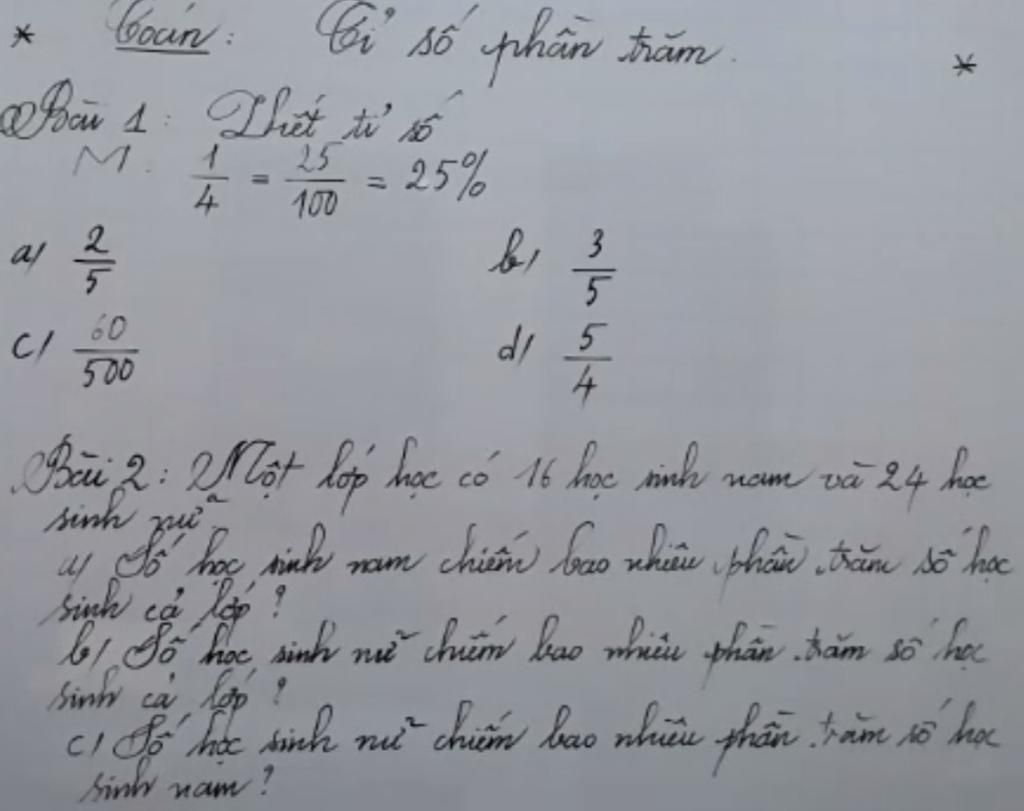 * Toán: Tỉ số phần trăm. *
Bài 1: Viết tỉ số
M: 1/4 = 25/100 = 25%
a/ 2/5 b/ 3/5
c/ 60/500 d/ 5/4
Bài 2: Một lớp học có 16 học sinh nam và 24 học
sinh nữ.
a/ Số học sinh nam chiếm bao nhiêu phần trăm số học
sinh cả lớp?
b/ Số học sinh nữ chiếm bao nhiêu phần trăm số học
sinh cả lớp?
c/ Số học sinh nữ chiếm bao nhiêu phần trăm số học
sinh nam?